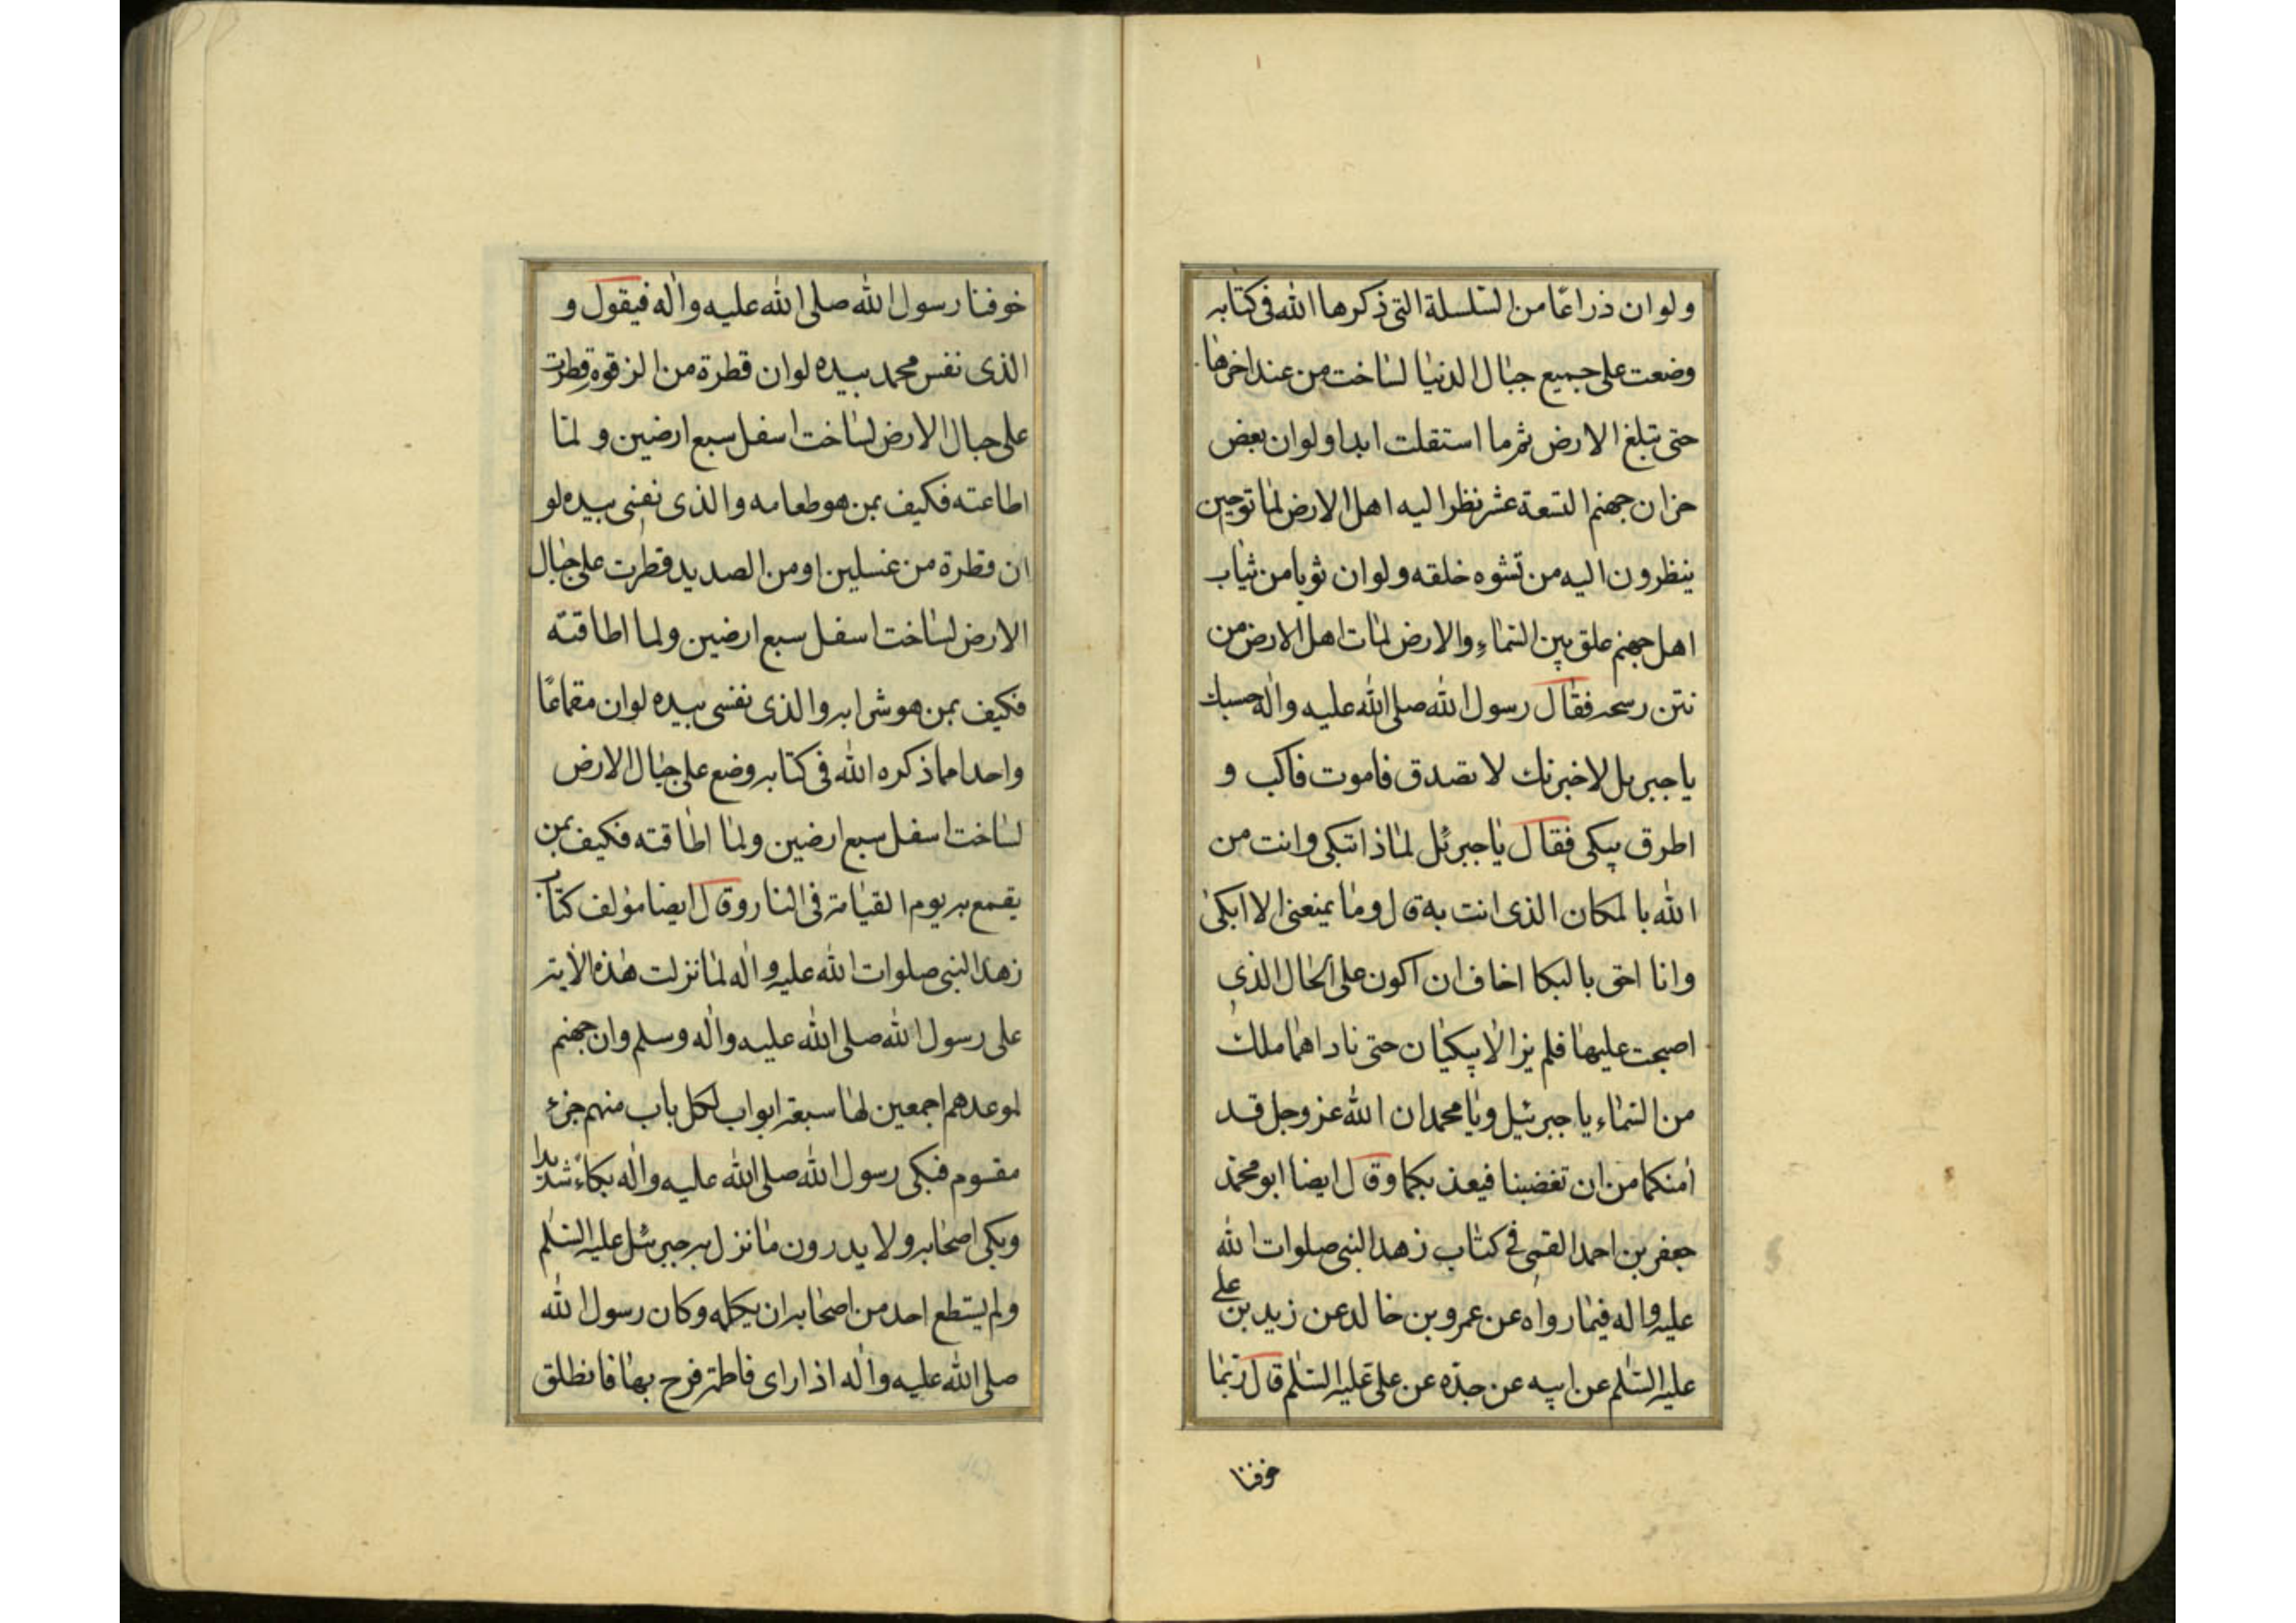 ولو ان ذراعا من السلسلة التى ذكرها الله فى كتابه
وضعت على جميع جبال الدنيا لساخت من عند اخرها
حتى تبلغ الارض ثم ما استقلت ابدا ولو ان بعض
خزان جهنم التسعة عشر نظر اليه اهل الارض لماتوا حين
ينظرون اليه من تشوه خلقه ولو ان ثوبا من ثياب
اهل جهنم علق بين السماء والارض لمات اهل الارض من
نتن ريحه فقال رسول الله صلى الله عليه واله حسبك
يا جبريل لا خبرنك لا تصدق فاموت فاكب و
اطرق يبكى فقال يا جبرئل لماذا تبكى وانت من
الله بالمكان الذى انت به قال وما يمنعنى الا ابكى
وانا احق بالبكا اخاف ان اكون على الحال الذى
اصبحت عليها فلم يزالا يبكيان حتى ناداهما ملك
من السماء يا جبرئيل ويا محمد ان الله عز وجل قد
امنكما من ان تغضبنا فيعذبكما وقال ايضا ابو محمد
جعفر بن احمد القمى فى كتاب زهد النبى صلوات الله
عليه واله فيما رواه عن عمرو بن خالد عن زيد بن على
عليه السلم عن ابيه عن جده عن على عليه السلم قال ربما
خوفنا
خوفنا رسول الله صلى الله عليه واله فيقول و
الذى نفس محمد بيده لو ان قطرة من الزقوم قطرت
على جبال الارض لساخت اسفل سبع ارضين و لما
اطاعته فكيف بمن هو طعامه والذى نفسى بيده لو
ان قطرة من غسلين او من الصديد قطرت على جبال
الارض لساخت اسفل سبع ارضين ولما اطاقته
فكيف بمن هو شرابه والذى نفسى بيده لو ان مقماعا
واحدا مما ذكره الله فى كتابه وضع على جبال الارض
لساخت اسفل سبع ارضين ولما اطاقته فكيف بمن
يقمع به يوم القيامة فى النار وقال ايضا مؤلف كتاب
زهد النبى صلوات الله عليه واله لما نزلت هذه الاية
على رسول الله صلى الله عليه واله وسلم وان جهنم
لموعدهم اجمعين لها سبعة ابواب لكل باب منهم جزء
مقسوم فبكى رسول الله صلى الله عليه واله بكاء شديدا
وبكى اصحابه ولا يدرون ما نزل به جبرئيل عليه السلم
ولم يستطع احد من اصحابه ان يكلمه وكان رسول الله
صلى الله عليه واله اذا راى فاطمة فرح بها فانطلق